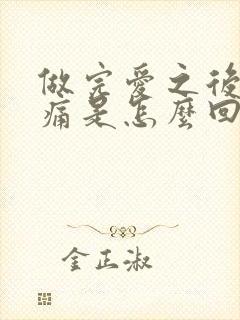 做完愛之後
痛是怎麼回
金正淑